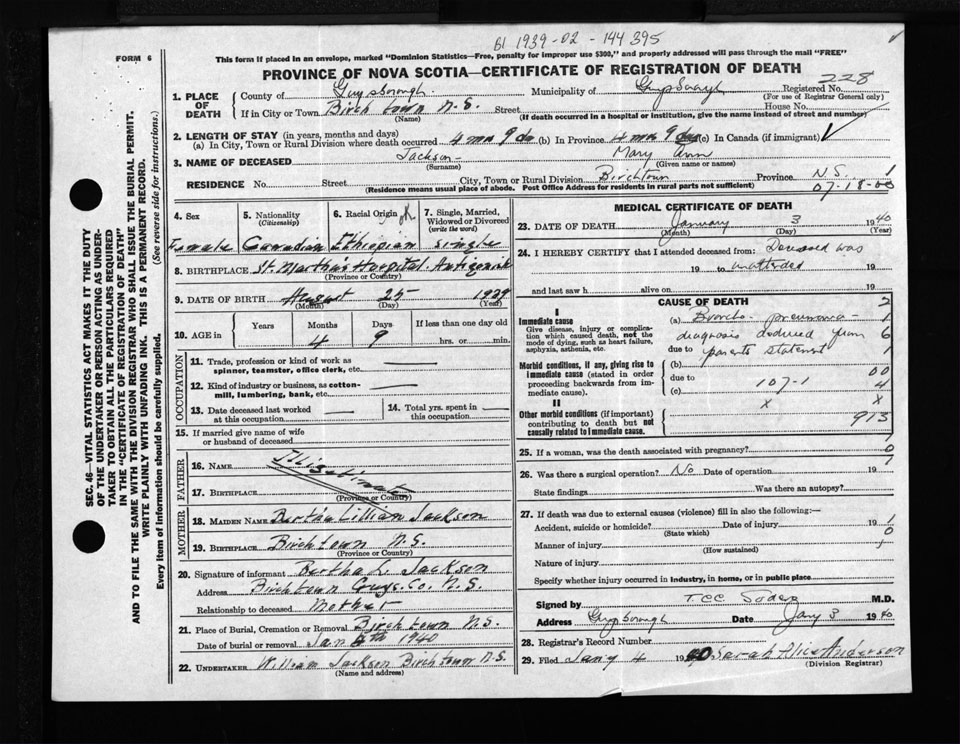 BI 1939-02-144395
FORM 6
This form if placed in an envelope, marked "Dominion Statistics—Free, penalty for improper use $300," and properly addressed will pass through the mail "FREE"
PROVINCE OF NOVA SCOTIA—CERTIFICATE OF REGISTRATION OF DEATH
228
1. PLACE OF DEATH
County of Guysborough Municipality of Guysborough Registered No.
(For use of Registrar General only)
If in City or Town Birchtown N.S. Street House No.
(Name) (If death occurred in a hospital or institution, give the name instead of street and number)
2. LENGTH OF STAY (in years, months and days)
(a) In City, Town or Rural Division where death occurred 4 mos 9 da (b) In Province 4 mos 9 da (c) In Canada (if immigrant)
3. NAME OF DECEASED Jackson Mary Ann
(Surname) (Given name or names)
RESIDENCE No. Street City, Town or Rural Division Birchtown Province N.S. 1
(Residence means usual place of abode. Post Office Address for residents in rural parts not sufficient) 07-18-00
4. Sex 5. Nationality (Citizenship) 6. Racial Origin 7. Single, Married, Widowed or Divorced (write the word)
Female Canadian Ethiopian Single
8. BIRTHPLACE St. Martha's Hospital Antigonish
(Province or Country)
9. DATE OF BIRTH August 25 1939
(Month) (Day) (Year)
10. AGE in Years Months Days If less than one day old
4 9 hrs. or min.
OCCUPATION
11. Trade, profession or kind of work as spinner, teamster, office clerk, etc.
12. Kind of industry or business, as cotton-mill, lumbering, bank, etc.
13. Date deceased last worked at this occupation
14. Total yrs. spent in this occupation
15. If married give name of wife or husband of deceased
FATHER
16. NAME Illigitimate
17. BIRTHPLACE
(Province or Country)
MOTHER
18. MAIDEN NAME Bertha Lillian Jackson
19. BIRTHPLACE Birchtown N.S.
(Province or Country)
20. Signature of informant Bertha L. Jackson
Address Birchtown Guys. Co. N.S.
Relationship to deceased Mother
21. Place of Burial, Cremation or Removal Birchtown N.S.
Date of burial or removal Jan 4th 1940
22. UNDERTAKER William Jackson Birchtown N.S.
(Name and address)
MEDICAL CERTIFICATE OF DEATH
23. DATE OF DEATH January 3 1940
(Month) (Day) (Year)
24. I HEREBY CERTIFY that I attended deceased from: Deceased was
19 to unattended 19
and last saw h alive on 19
CAUSE OF DEATH 2
I
Immediate cause
Give disease, injury or complication which caused death, not the mode of dying, such as heart failure, asphyxia, asthenia, etc.
(a) Broncho pneumonia 1
diagnosis deduced from 6
due to parents statement 1
Morbid conditions, if any, giving rise to immediate cause (stated in order proceeding backwards from immediate cause).
(b) 00
due to 107-1 4
(c)
II
x x
Other morbid conditions (if important) contributing to death but not causally related to immediate cause.
913
25. If a woman, was the death associated with pregnancy?
26. Was there a surgical operation? No Date of operation 19
State findings Was there an autopsy?
27. If death was due to external causes (violence) fill in also the following:—
Accident, suicide or homicide? Date of injury 19
(State which)
Manner of injury
(How sustained)
Nature of injury
Specify whether injury occurred in industry, in home, or in public place
Signed by M.D.
Address Guysborough Date Jany 3 1940
28. Registrar's Record Number
29. Filed Jany 4 1940 Sarah Alice Anderson
(Division Registrar)
SEC. 46—VITAL STATISTICS ACT MAKES IT THE DUTY
OF THE UNDERTAKER OR PERSON ACTING AS UNDER-
TAKER TO OBTAIN ALL THE PARTICULARS REQUIRED
IN THE "CERTIFICATE OF REGISTRATION OF DEATH"
AND TO FILE THE SAME WITH THE DIVISION REGISTRAR WHO SHALL ISSUE THE BURIAL PERMIT.
WRITE PLAINLY WITH UNFADING INK. THIS IS A PERMANENT RECORD.
Every item of Information should be carefully supplied. (See reverse side for instructions.)